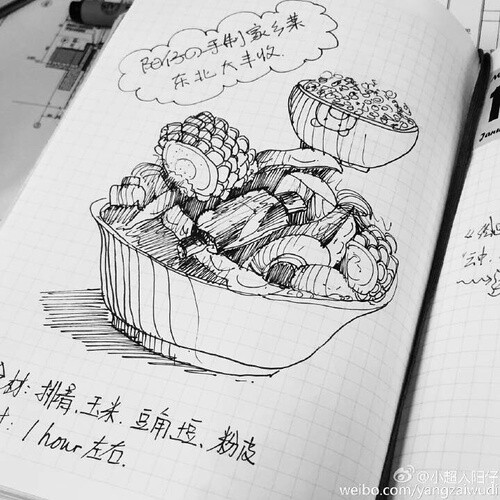 阳仔の手制家乡菜
东北大丰收.
材: 排骨、玉米、豆角、土豆、粉皮
: 1 hour 左右.
@小超人阳仔
weibo.com/yangzaiwudi